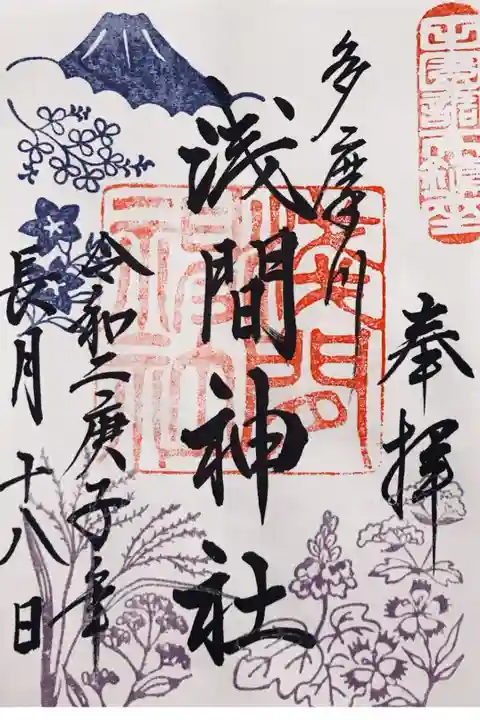 奉拝
多摩川
浅間神社
浅間
神社
令和二庚子年
長月十八日